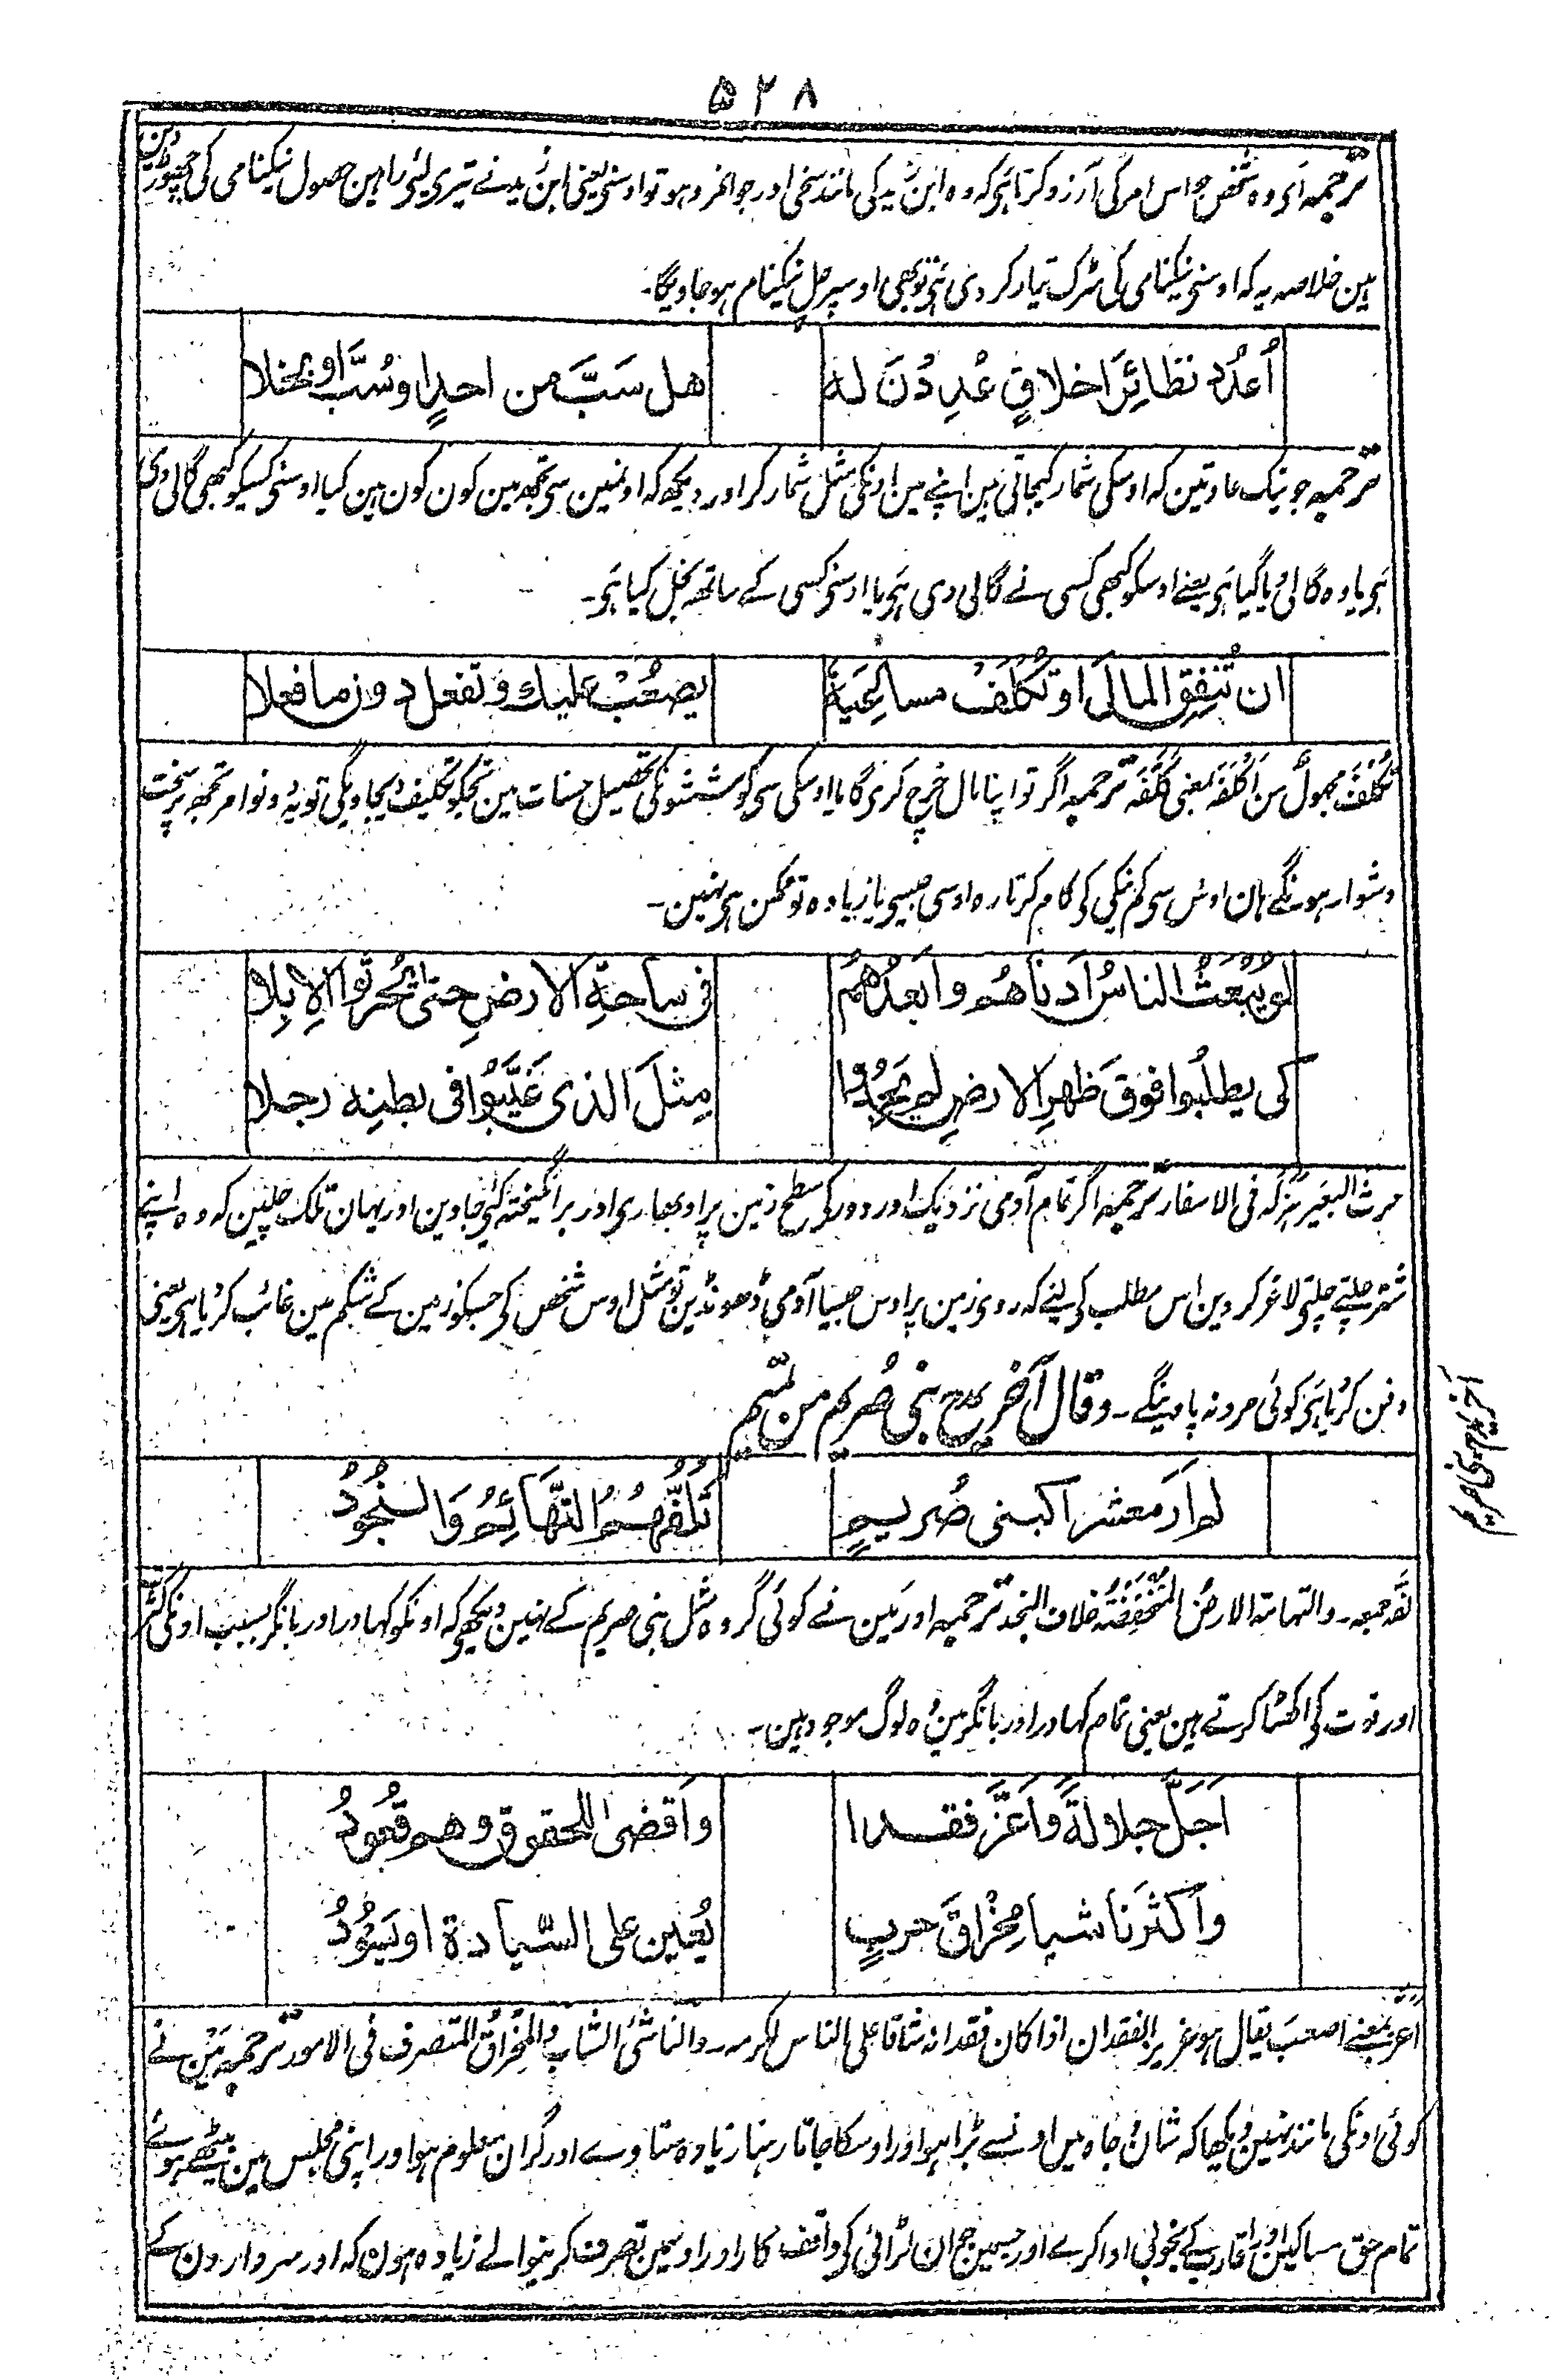 ۵۲۸
ترجمہ ای وہ شخص جو اس امر کی آرزو کرتا ہی کہ وہ ابن زید کی مانند سخی اور جوانمرد ہو تو اوسنی یعنی ابن زید نے تیری لئی راہین حصول نیکنامی کی چھوڑ دین
ہین خلاصہ یہ کہ اوسنی نیکنامی کی سڑک تیار کر دی ہی تو بھی اوسپر چل نیکنام ہو جاویگا۔
اُعدُد نظائِرَ اخلاقٍ عُدِدْنَ له    هل سَبَّ من احدٍ او سُبَّ او بخلا
ترجمہ جو نیک عادتین کہ اوسکی شمار کیجاتی ہین اپنے مین اونکی مثل شمار کر اور دیکھ کہ اونمین سی تجھ مین کون کون ہین کیا اوسنی کسیکو کبھی گالی دی
ہی یا وہ گالی دیا گیا ہی یعنے اوسکو کبھی کسی نے گالی دی ہی یا اوسنی کسی کے ساتھ بخل کیا ہی۔
ان تُنفِقِ المالَ او تُكلَفْ مساعِيَهٗ    يصعُبْ عليك و تفعل دون ما فعلا
تُکلَفْ مجہول من اَکلَفَہ بمعنی کلَّفَہ ترجمہ اگر تو اپنا مال خرچ کری گا یا اوسکی سی کوششونکی تحصیل حسنات مین تجکو تکلیف دیجاویگی تو یہ دونو امر تجھ پر سخت
دشوار ہونگے ہان اوس سی کم نیکی کی کام کرتا رہ اوسی جیسی یا زیادہ تو ممکن ہی نہین۔
لو يُبْعَثُ الناسُ اَدناهُم و اَبعدُهُمْ    فى ساحةِ الارضِ حتى يُحرِثوا الاِبِلا
كى يطلُبوا فوقَ ظهرِ الارضِ لم يَجِدُوا    مِثلَ الذى غَيَّبُوا فى بطنِه رجلا
حرث البعیر ہزلہ فی الاسفار ترجمہ اگر تمام آدمی نزدیک اور دور کی سطح زمین پر اوبھاری اور برانگیختہ کئی جاوین اور یہان تلک چلین کہ وہ اپنے
شتر چلتے چلتی لاغر کر دین اس مطلب کی لئے کہ روی زمین پر اوس جیسا آدمی ڈھونڈین تو مثل اوس شخص کی جسکو زمین کے شکم مین غائب کر دیا ہی یعنی
دفن کر دیا ہی کوئی مرد نہ پاوینگے۔ وقال آخر یمدح بنی صُریم من تمیم
آخر یمدح بنی صریم
لم اَرَ معشرا كبنى صُريمٍ    تَلُفُّهُمُ التَّهَائِمُ وَ النُجُودُ
لفہ جمعہ۔ والتہامۃ الارض المنخفِضۃ خلاف النجد ترجمہ اور مین نے کوئی گروہ مثل بنی صریم کے نہین دیکھی کہ اونکو کہادر اور بانگر بسبب اونکی کثرت
اور قوت کی اکٹھا کرتے ہین یعنی تمام کہادر اور بانگر مین وہ لوگ موجود ہین۔
اَجَلَّ جلالةً و اَعَزَّ فقدا    و اَقضىٰ للحقوق و هم قُعُودُ
و اَكثَرَ ناشيا مِخْراقَ حربٍ    يُعين على السّيادة او يَسُودُ
اعز بمعنے اصعبَ یقال ہو عزیز الفقدان اذا کان فقدانہ شاقا علی الناس لکرمہ۔ والناشئ الشاب والمِخراقُ المتصرف فی الامور ترجمہ مین نے
کوئی اونکی مانند نہین دیکھا کہ شان و جاہ مین اونسے بڑا ہو اور اوسکا جاتا رہنا زیادہ ستاوے اور گران معلوم ہو اور اپنی مجلس مین بیٹھے ہوئے
تمام حق مساکین اور اقارب کے بخوبی ادا کرے اور جسمین جوان لڑائی کی واقف کار اور اوسمین تصرف کرنیوالے زیادہ ہون کہ اور سردارون کے